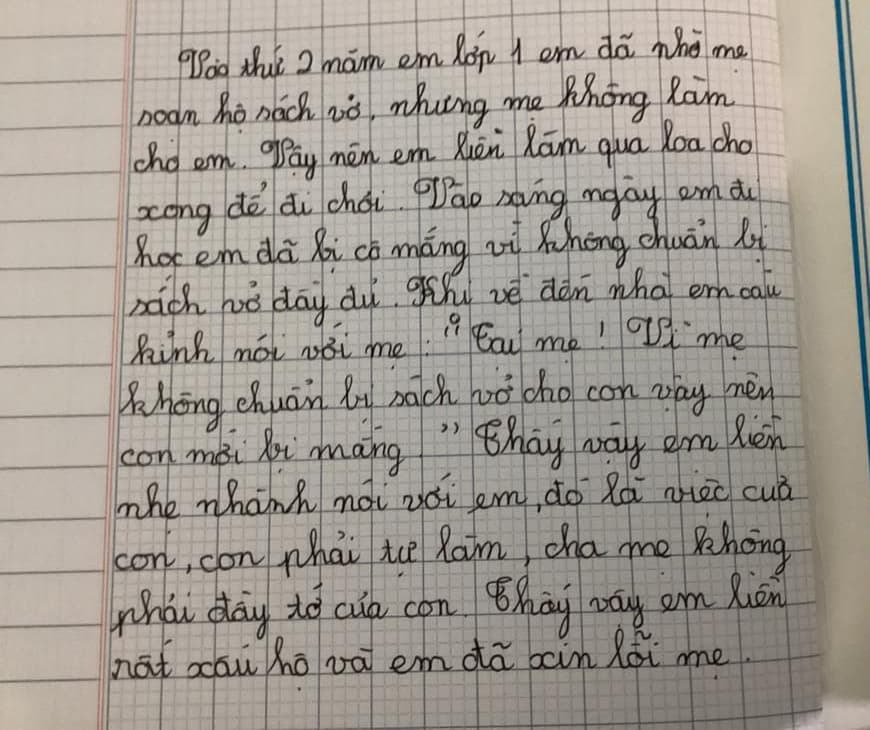 Vào thứ 2 năm em lớp 1 em đã nhờ mẹ
soạn hộ sách vở, nhưng mẹ không làm
cho em. Vậy nên em liền làm qua loa cho
xong để đi chơi. Vào sáng ngày em đi
học em đã bị cô mắng vì không chuẩn bị
sách vở đầy đủ. Khi về đến nhà em cáu
kỉnh nói với mẹ: "Tại mẹ! Vì mẹ
không chuẩn bị sách vở cho con vậy nên
con mới bị mắng." Thấy vậy em liền
nhẹ nhành nói với em, đó là việc của
con, con phải tự làm, cha mẹ không
phải đầy tớ của con. Thấy vậy em liền
rất xấu hổ và em đã xin lỗi mẹ.